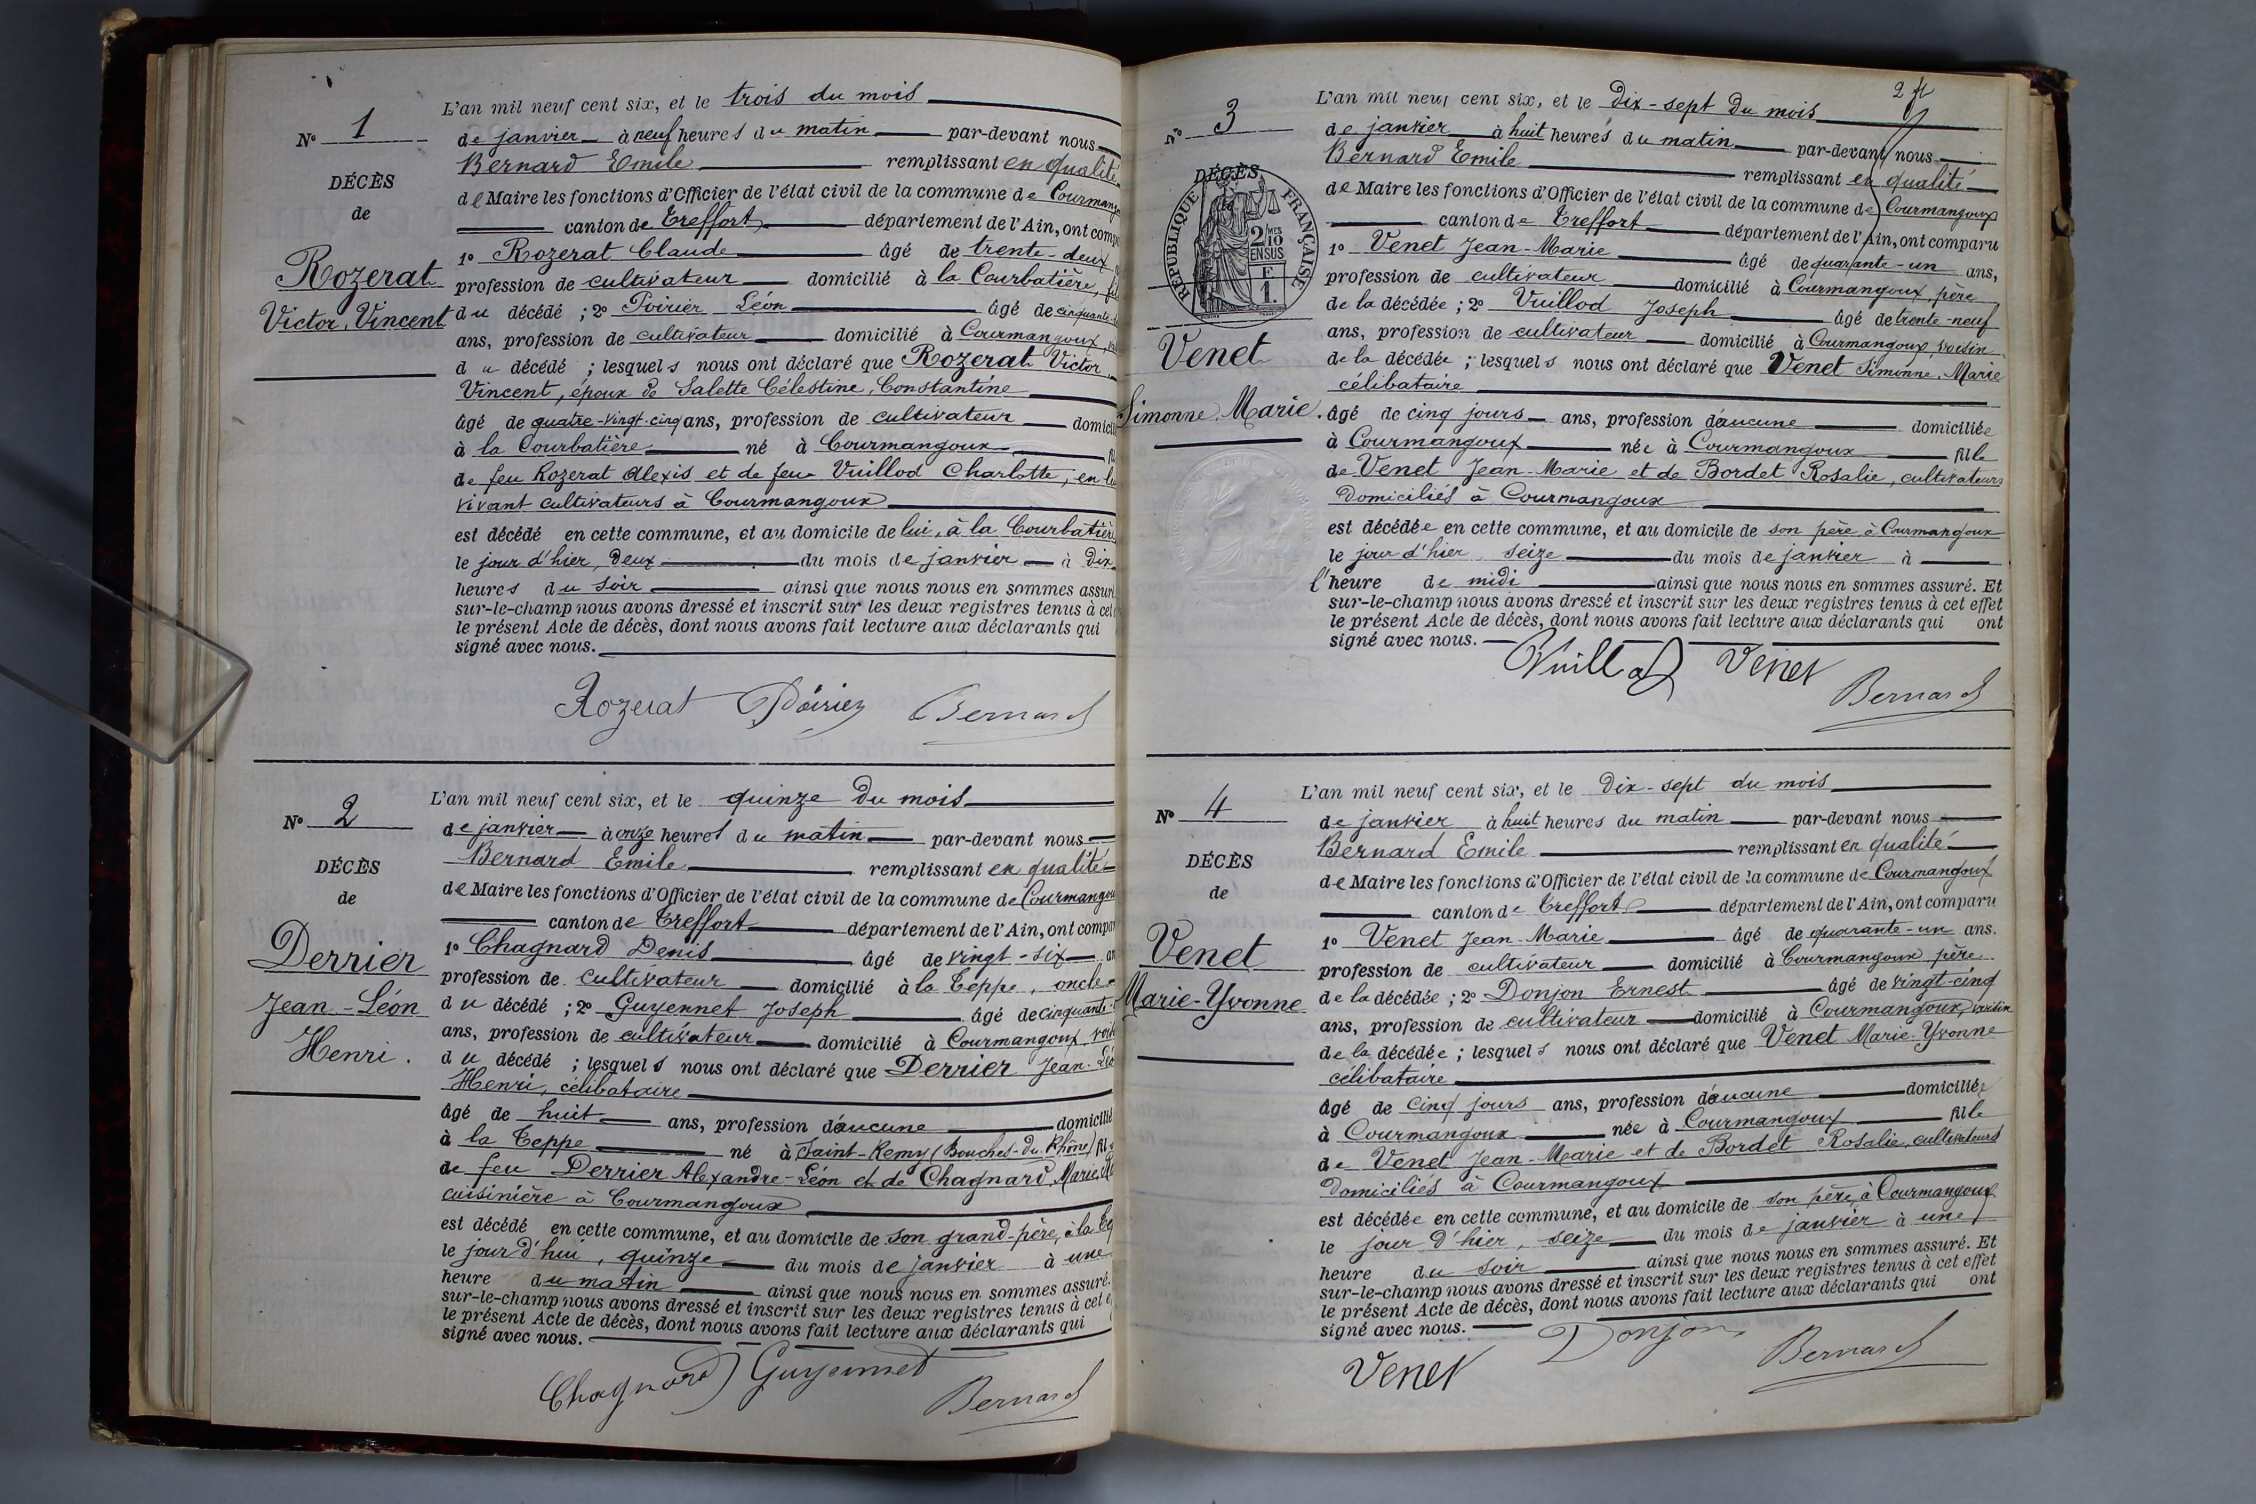 L'an mil neuf cent six, et le trois du mois
No 1
de janvier à neuf heures du matin par-devant nous
Bernard Emile remplissant en qualité
DÉCÈS
de Maire les fonctions d'Officier de l'état civil de la commune de
de
canton de Treffort département de l'Ain, ont
1o Rozerat Claude âgé de trente-deux
Rozerat
profession de cultivateur domicilié à la Courbatière,
Victor, Vincent
du décédé ; 2o Poirier Léon âgé de
ans, profession de cultivateur domicilié à Courmangoux,
du décédé ; lesquels nous ont déclaré que Rozerat Victor
Vincent, époux de Salette Célestine, Constantine
âgé de quatre-vingt-cinq ans, profession de cultivateur
à la Courbatière né à Courmangoux
de feu Rozerat Alexis et de feue Vuillod Charlotte, en
vivant cultivateurs à Courmangoux
est décédé en cette commune, et au domicile de lui, à la
le jour d'hier, deux du mois de janvier à dix
heures du soir ainsi que nous nous en sommes
sur-le-champ nous avons dressé et inscrit sur les deux registres tenus à
le présent Acte de décès, dont nous avons fait lecture aux déclarants qui
signé avec nous.
Rozerat Poirier Bernard
L'an mil neuf cent six, et le quinze du mois
No 2
de janvier à onze heures du matin par-devant nous
Bernard Emile remplissant en qualité
DÉCÈS
de Maire les fonctions d'Officier de l'état civil de la commune de
de
canton de Treffort département de l'Ain, ont
1o Chagnard Denis âgé de vingt-six
Derrier
profession de cultivateur domicilié à la Teppe, oncle
Jean-Léon
du décédé ; 2o Guyennet Joseph âgé de
Henri.
ans, profession de cultivateur domicilié à Courmangoux,
du décédé ; lesquels nous ont déclaré que Derrier Jean-
Henri, célibataire
âgé de huit ans, profession d'aucune domicilié
à la Teppe né à Saint-Remy (Bouches-du-Rhône)
de feu Derrier Alexandre-Léon et de Chagnard Marie,
cuisinière à Courmangoux
est décédé en cette commune, et au domicile de son grand-père, à la
le jour d'hui, quinze du mois de janvier à une
heure du matin ainsi que nous nous en sommes assuré.
sur-le-champ nous avons dressé et inscrit sur les deux registres tenus à cet
le présent Acte de décès, dont nous avons fait lecture aux déclarants qui
signé avec nous.
Chagnard Guyennet Bernard
2
L'an mil neuf cent six, et le dix-sept du mois
No 3
de janvier à huit heures du matin par-devant nous
Bernard Emile remplissant en qualité
DÉCÈS
de Maire les fonctions d'Officier de l'état civil de la commune de Courmangoux
RÉPUBLIQUE FRANÇAISE
2/10 MES
EN SUS
F
1.
canton de Treffort département de l'Ain, ont comparu
1o Venet Jean-Marie âgé de quarante-un ans,
profession de cultivateur domicilié à Courmangoux, père
de la décédée ; 2o Vuillod Joseph âgé de trente-neuf
Venet
ans, profession de cultivateur domicilié à Courmangoux, voisin
de la décédée ; lesquels nous ont déclaré que Venet Simonne, Marie
célibataire
Simonne, Marie.
âgé de cinq jours ans, profession d'aucune domiciliée
à Courmangoux née à Courmangoux fille
de Venet Jean-Marie et de Bordet Rosalie, cultivateurs
domiciliés à Courmangoux
est décédée en cette commune, et au domicile de son père à Courmangoux
le jour d'hier seize du mois de janvier à
l'heure de midi ainsi que nous nous en sommes assuré. Et
sur-le-champ nous avons dressé et inscrit sur les deux registres tenus à cet effet
le présent Acte de décès, dont nous avons fait lecture aux déclarants qui ont
signé avec nous.
Vuillod Venet Bernard
L'an mil neuf cent six, et le dix-sept du mois
No 4
de janvier à huit heures du matin par-devant nous
Bernard Emile remplissant en qualité
DÉCÈS
de Maire les fonctions d'Officier de l'état civil de la commune de Courmangoux
de
canton de Treffort département de l'Ain, ont comparu
1o Venet Jean-Marie âgé de quarante-un ans.
Venet
profession de cultivateur domicilié à Courmangoux père
Marie-Yvonne
de la décédée ; 2o Donjon Ernest âgé de vingt-cinq
ans, profession de cultivateur domicilié à Courmangoux, voisin
de la décédée ; lesquels nous ont déclaré que Venet Marie-Yvonne
célibataire
âgé de cinq jours ans, profession d'aucune domiciliée
à Courmangoux née à Courmangoux fille
de Venet Jean-Marie et de Bordet Rosalie, cultivateurs
domiciliés à Courmangoux
est décédée en cette commune, et au domicile de son père, à Courmangoux
le jour d'hier, seize du mois de janvier à une
heure du soir ainsi que nous nous en sommes assuré. Et
sur-le-champ nous avons dressé et inscrit sur les deux registres tenus à cet effet
le présent Acte de décès, dont nous avons fait lecture aux déclarants qui ont
signé avec nous.
Venet Donjon Bernard